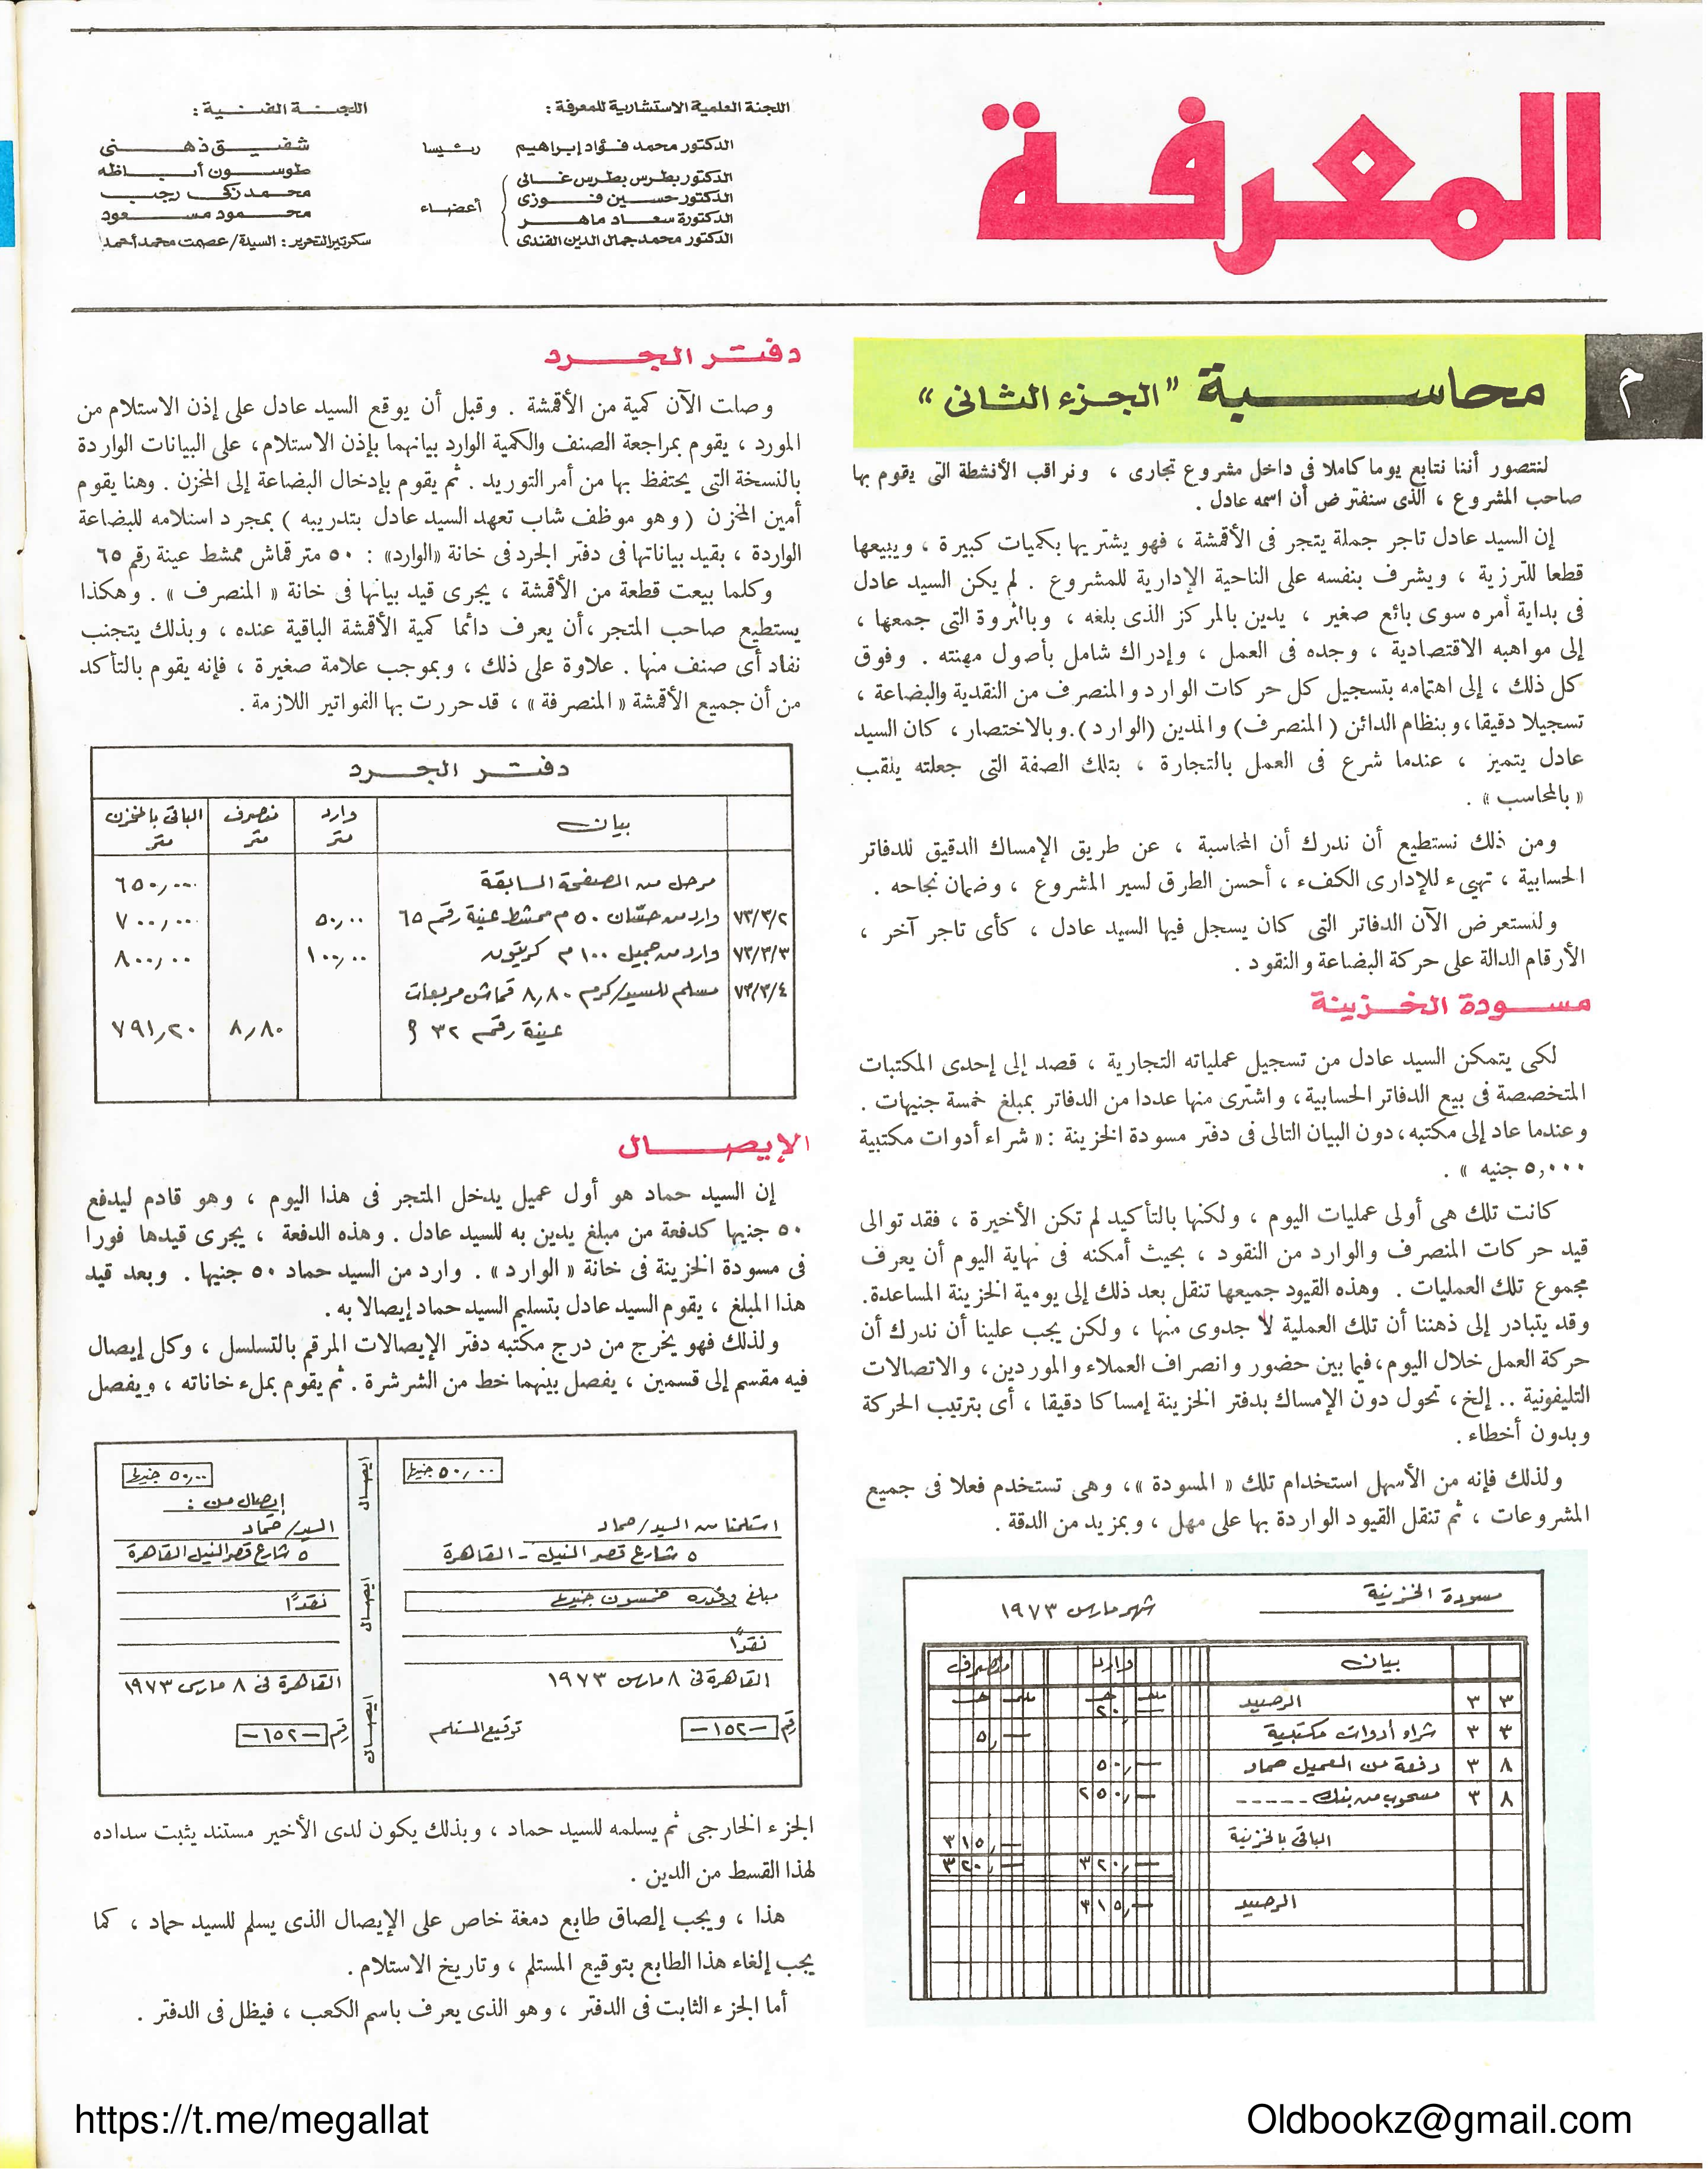 المعرفة
اللجنة العلمية الاستشارية للمعرفة :
الدكتور محمد فؤاد إبراهيم رئيسا
الدكتور بطرس بطرس غالى
الدكتور حسين فوزى
الدكتورة سعاد ماهر
الدكتور محمد جمال الدين الفندى
أعضاء
اللجنة الفنية :
شفيق ذهنى
طوسون أباظه
محمد زكى رجب
محمود مسعود
سكرتير التحرير : السيدة / عصمت محمد أحمد
م
محاسبة "الجزء الثانى"
لنتصور أننا نتابع يوما كاملا فى داخل مشروع تجارى ، ونراقب الأنشطة التى يقوم بها
صاحب المشروع ، الذى سنفترض أن اسمه عادل .
إن السيد عادل تاجر جملة يتجر فى الأقمشة ، فهو يشتريها بكميات كبيرة ، ويبيعها
قطعا للترزية ، ويشرف بنفسه على الناحية الإدارية للمشروع . لم يكن السيد عادل
فى بداية أمره سوى بائع صغير ، يدين بالمركز الذى بلغه ، وبالثروة التى جمعها ،
إلى مواهبه الاقتصادية ، وجده فى العمل ، وإدراك شامل بأصول مهنته . وفوق
كل ذلك ، إلى اهتمامه بتسجيل كل حركات الوارد والمنصرف من النقدية والبضاعة ،
تسجيلا دقيقا ، وبنظام الدائن ( المنصرف) والمدين (الوارد). وبالاختصار ، كان السيد
عادل يتميز ، عندما شرع فى العمل بالتجارة ، بتلك الصفة التى جعلته يلقب
« بالمحاسب » .
ومن ذلك نستطيع أن ندرك أن المحاسبة ، عن طريق الإمساك الدقيق للدفاتر
الحسابية ، تهيىء للإدارى الكفء ، أحسن الطرق لسير المشروع ، وضمان نجاحه .
ولنستعرض الآن الدفاتر التى كان يسجل فيها السيد عادل ، كأى تاجر آخر ،
الأرقام الدالة على حركة البضاعة والنقود .
مسودة الخزينة
لكى يتمكن السيد عادل من تسجيل عملياته التجارية ، قصد إلى إحدى المكتبات
المتخصصة فى بيع الدفاتر الحسابية ، واشترى منها عددا من الدفاتر بمبلغ خمسة جنيهات .
وعندما عاد إلى مكتبه ، دون البيان التالى فى دفتر مسودة الخزينة : « شراء أدوات مكتبية
٥,٠٠٠ جنيه » .
كانت تلك هى أولى عمليات اليوم ، ولكنها بالتأكيد لم تكن الأخيرة ، فقد توالى
قيد حركات المنصرف والوارد من النقود ، بحيث أمكنه فى نهاية اليوم أن يعرف
مجموع تلك العمليات . وهذه القيود جميعها تنقل بعد ذلك إلى يومية الخزينة المساعدة.
وقد يتبادر إلى ذهننا أن تلك العملية لا جدوى منها ، ولكن يجب علينا أن ندرك أن
حركة العمل خلال اليوم ، فيما بين حضور وانصراف العملاء والموردين، والاتصالات
التليفونية .. إلخ ، تحول دون الإمساك بدفتر الخزينة إمساكا دقيقا ، أى بترتيب الحركة
وبدون أخطاء .
ولذلك فإنه من الأسهل استخدام تلك « المسودة »، وهى تستخدم فعلا فى جميع
المشروعات ، ثم تنقل القيود الواردة بها على مهل ، وبمزيد من الدقة .
مسودة الخزينة
شهر مارس ١٩٧٣
بيان وارد منصرف
مليم جـ مليم جـ
٣ ٣ الرصيد ٢٠,—
٣ ٣ شراء أدوات مكتبية ٥,—
٨ ٣ دفعة من العميل حماد ٥٠,—
٨ ٣ مسحوب من بنك ----- ٢٥٠,—
الباقى بالخزينة ٣١٥,—
٣٢٠,— ٣٢٠,—
الرصيد ٣١٥,—
دفتر الجرد
وصلت الآن كمية من الأقمشة . وقبل أن يوقع السيد عادل على إذن الاستلام من
المورد ، يقوم بمراجعة الصنف والكمية الوارد بيانهما بإذن الاستلام، على البيانات الواردة
بالنسخة التى يحتفظ بها من أمر التوريد . ثم يقوم بإدخال البضاعة إلى المخزن . وهنا يقوم
أمين المخزن ( وهو موظف شاب تعهد السيد عادل بتدريبه ) بمجرد استلامه للبضاعة
الواردة ، بقيد بياناتها فى دفتر الجرد فى خانة «الوارد» : ٥٠ متر قماش ممشط عينة رقم ٦٥
وكلما بيعت قطعة من الأقمشة ، يجرى قيد بيانها فى خانة « المنصرف » . وهكذا
يستطيع صاحب المتجر ، أن يعرف دائما كمية الأقمشة الباقية عنده ، وبذلك يتجنب
نفاد أى صنف منها . علاوة على ذلك ، وبموجب علامة صغيرة ، فإنه يقوم بالتأكد
من أن جميع الأقمشة « المنصرفة » ، قد حررت بها الفواتير اللازمة .
دفتر الجرد
بيان وارد متر منصرف متر الباقى بالمخزن متر
مرحل من الصفحة السابقة ٦٥٠,٠٠
٧٣/٣/٢ وارد من حسّان ٥٠ م ممشط عينة رقم ٦٥ ٥٠,٠٠ ٧٠٠,٠٠
٧٣/٣/٣ وارد من جميل ١٠٠ م كريتون ١٠٠,٠٠ ٨٠٠,٠٠
٧٣/٣/٤ مسلم للسيد/كرم ٨,٨٠ قماش مربعات
عينة رقم ٣٢ م ٨,٨٠ ٧٩١,٢٠
الإيصال
إن السيد حماد هو أول عميل يدخل المتجر فى هذا اليوم ، وهو قادم ليدفع
٥٠ جنيها كدفعة من مبلغ يدين به للسيد عادل . وهذه الدفعة ، يجرى قيدها فورا
فى مسودة الخزينة فى خانة « الوارد» . وارد من السيد حماد ٥٠ جنيها . وبعد قيد
هذا المبلغ ، يقوم السيد عادل بتسليم السيد حماد إيصالا به .
ولذلك فهو يخرج من درج مكتبه دفتر الإيصالات المرقم بالتسلسل ، وكل إيصال
فيه مقسم إلى قسمين ، يفصل بينهما خط من الشرشرة . ثم يقوم بملء خاناته ، ويفصل
٥٠,٠٠ جنيها
استلمنا من السيد/حماد
٥ شارع قصر النيل - القاهرة
مبلغ وقدره خمسون جنيها
نقدًا
القاهرة فى ٨ مارس ١٩٧٣
رقم -١٥٢-
توقيع المستلم
ايصال
ايصال
ايصال
٥٠,٠٠ جنيها
إيصال من :
السيد/حماد
٥ شارع قصر النيل القاهرة
نقدًا
القاهرة فى ٨ مارس ١٩٧٣
رقم -١٥٢-
الجزء الخارجى ثم يسلمه للسيد حماد ، وبذلك يكون لدى الأخير مستند يثبت سداده
لهذا القسط من الدين .
هذا ، ويجب إلصاق طابع دمغة خاص على الإيصال الذى يسلم للسيد حماد ، كما
يجب إلغاء هذا الطابع بتوقيع المستلم ، وتاريخ الاستلام .
أما الجزء الثابت فى الدفتر ، وهو الذى يعرف باسم الكعب ، فيظل فى الدفتر .
https://t.me/megallat
Oldbookz@gmail.com